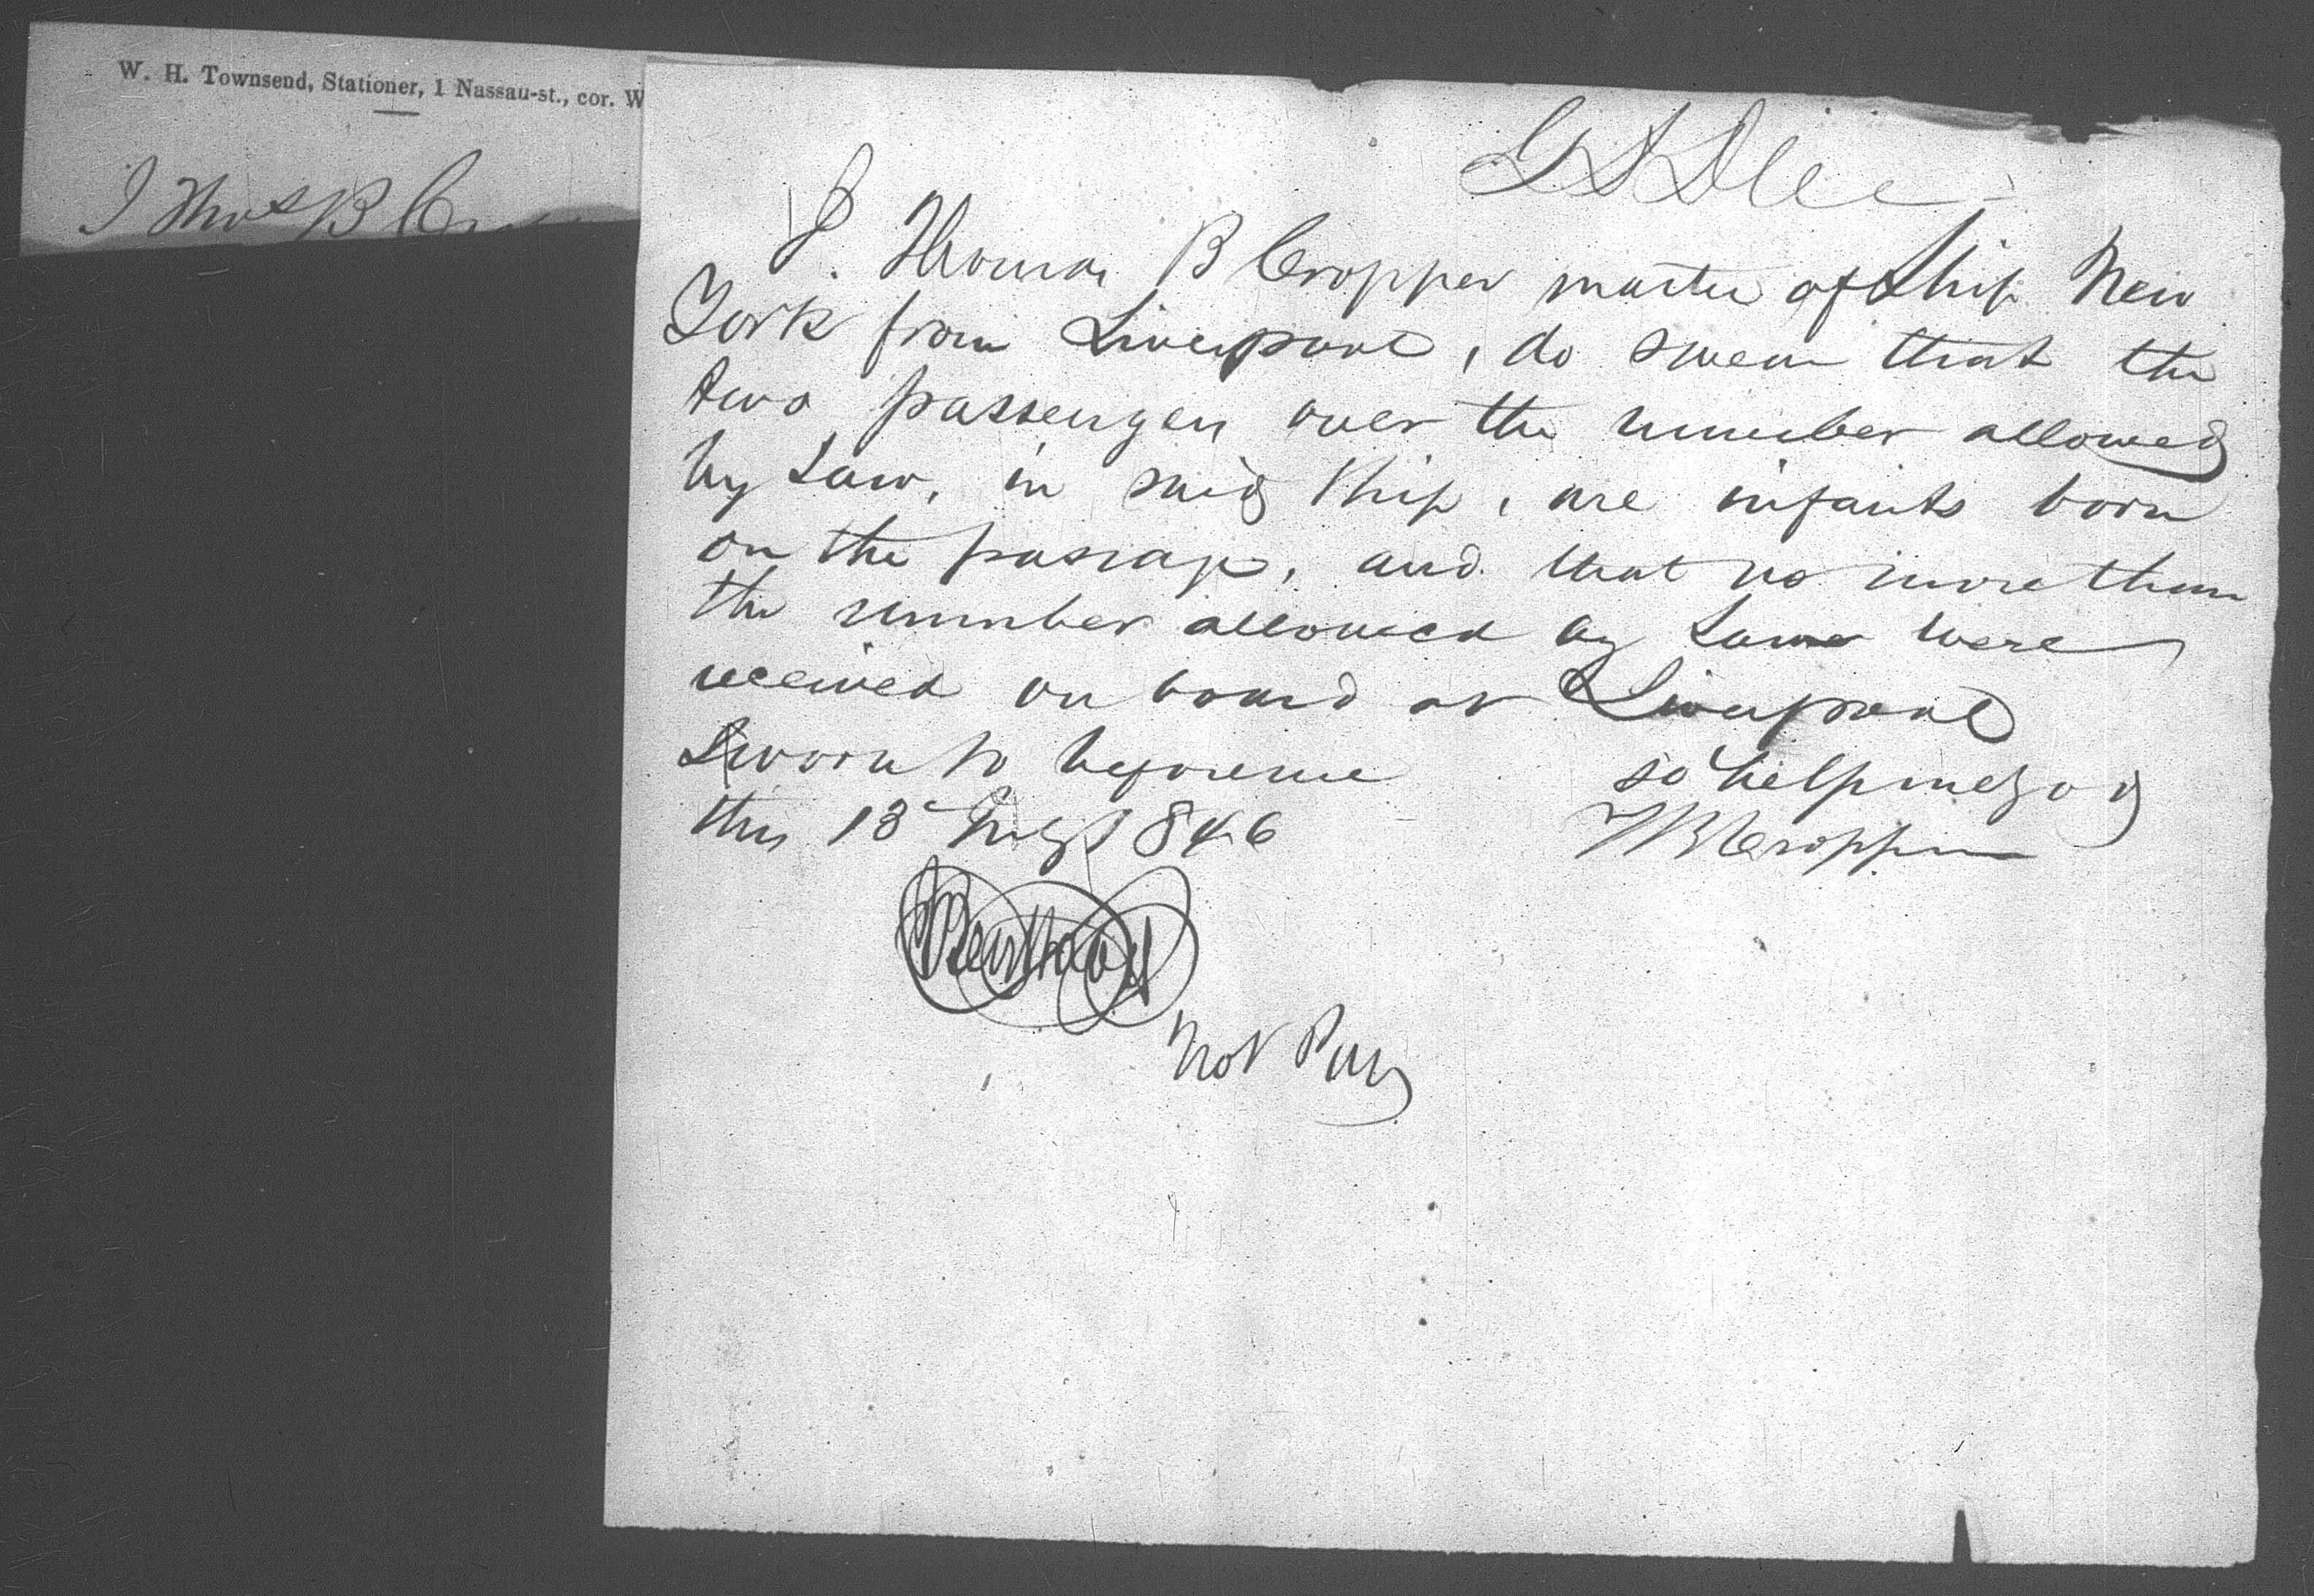 W. H. Townsend, Stationer, 1 Nassau-st., cor. W
I Thos B Cr
I. Thomas B Cropper master of Ship New
York from Liverpool, do swear that the
two passengers over the number allowed
by Law, in said Ship, are infants born
on the passage, and that no more than
the number allowed by Law were
received on board at Liverpool
Sworn to before me so help me God
this 13 July 1846 T B Cropper
Not Pub